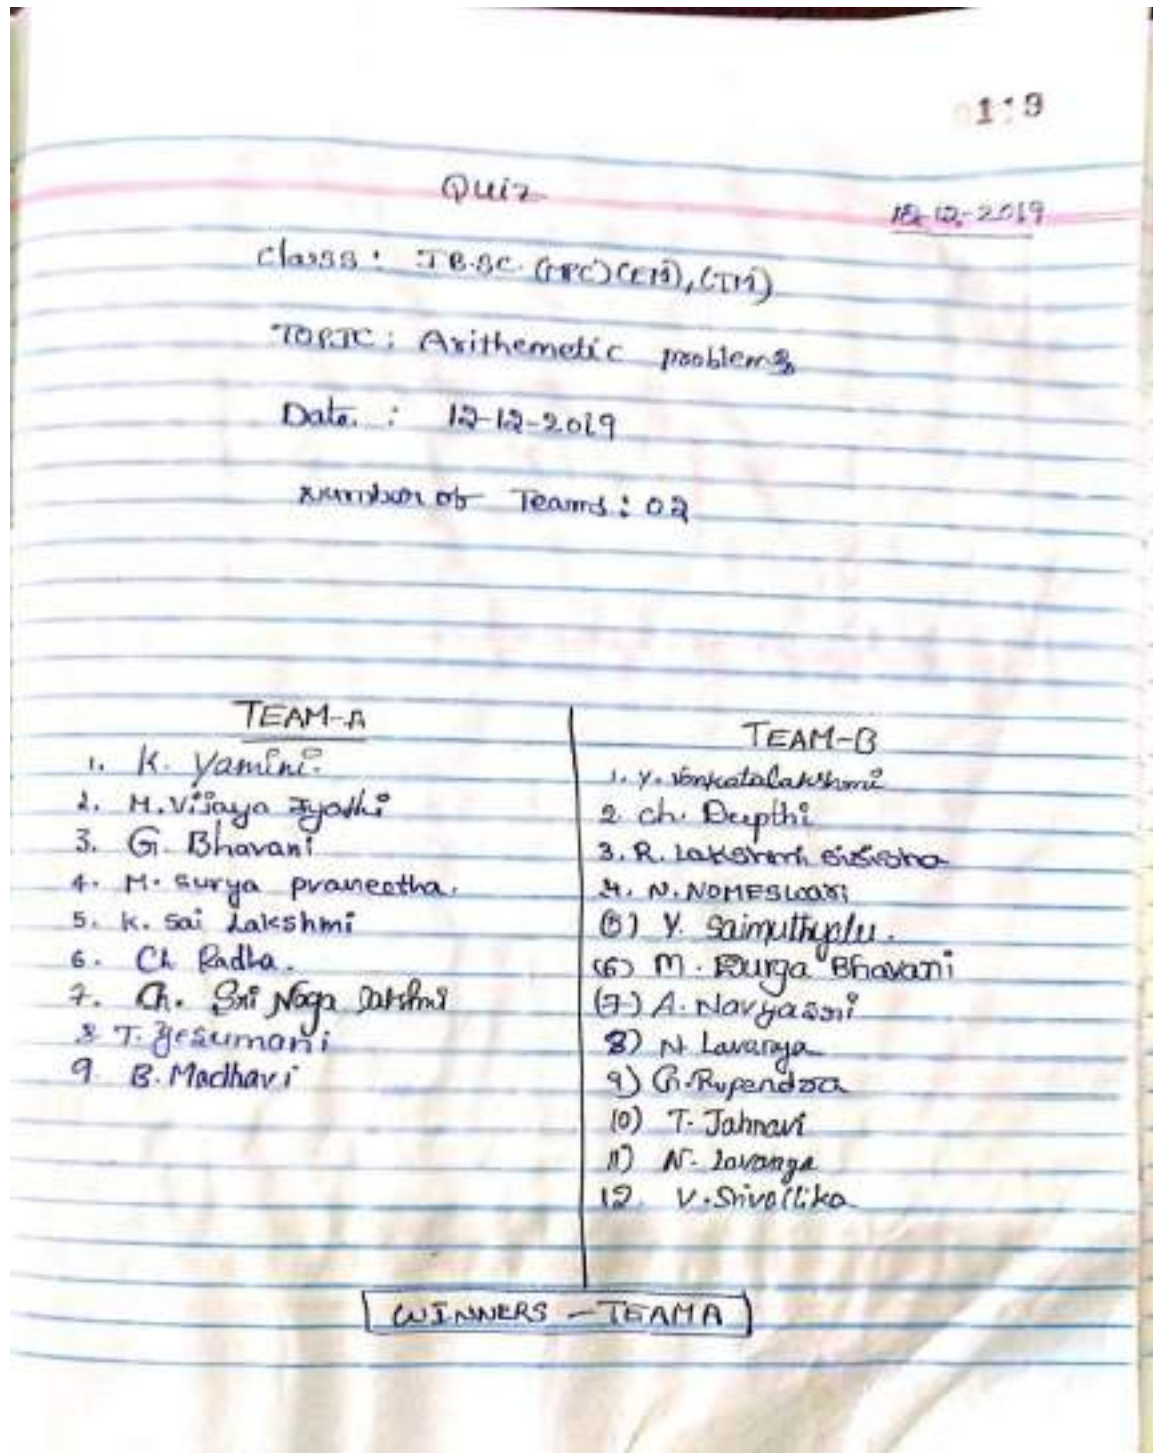 119
Quiz
12-12-2019
Class : I B.SC. (MPC) (EM), (TM)
TOPIC : Arithemetic problems
Date : 12-12-2019
Number of Teams : 02
TEAM-A
1. K. Yamini.
2. M. Vijaya Jyothi
3. G. Bhavani
4. M. Surya praneetha.
5. K. Sai Lakshmi
6. Ch Radha.
7. Ch. Sri Naga Lakshmi
8 T. Yesumani
9. B. Madhavi
TEAM-B
1. Y. Venkatalakshmi
2 Ch. Deepthi
3. R. Lakshmi
4. N. NOMESWARI
(5) Y. Saimuthyalu.
(6) M. Durga Bhavani
(7) A. Navyasri
8) N Lavanya
9) G. Rupendra
10) T. Jahnavi
11) N. Lavanya
12. V. Srivallika
WINNERS - TEAM A